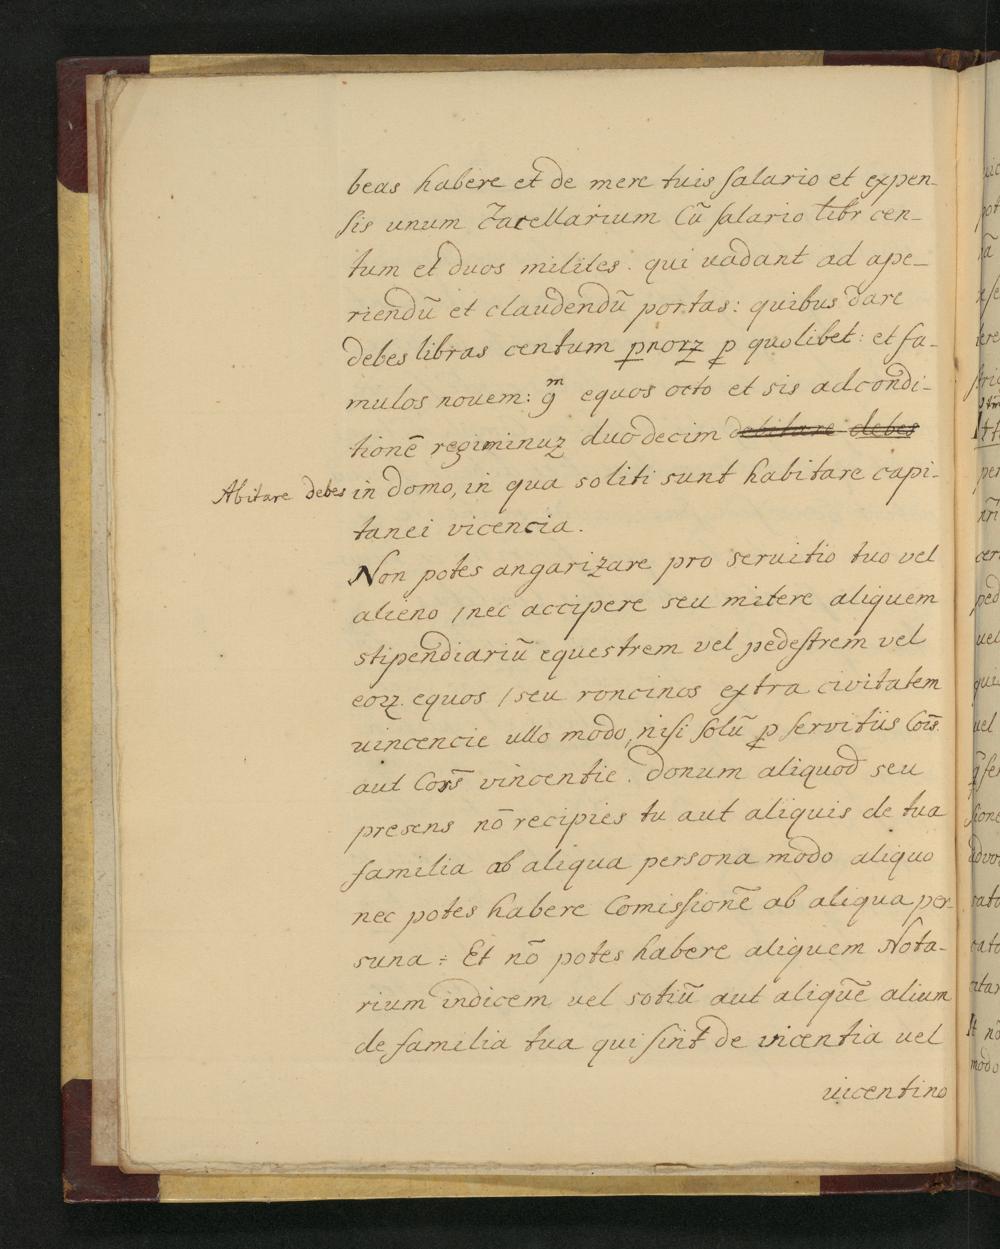 beas habere et de mere tuis salario et expen-
sis unum Cacellarium Cũ salario libr cen-
tum et duos milites. qui vadant ad ape-
riendũ et claudendũ portas: quibus dare
debes libras centum pnorz p quolibet: et fa-
mulos nouem: gᵐ equos octo et sis ad condi-
tionẽ regiminuz duodecim debitare debes
Abitare debes in domo, in qua soliti sunt habitare capi-
tanei vicencia.
Non potes angarizare pro servitio tuo vel
alieno / nec accipere seu mitere aliquem
stipendiariũ equestrem vel pedestrem vel
eorz equos / seu roncinos extra civitatem
vincencie ullo modo, nisi solũ p servitiis Cois̃.
aut Cois̃ vincentie. Donum aliquod seu
presens nõ recipies tu aut aliquis de tua
familia ab aliqua persona modo aliquo
nec potes habere Comissionẽ ab aliqua per-
suna: Et nõ potes habere aliquem Nota-
rium indicem vel sotiũ aut aliquẽ alium
de familia tua qui sint de vicentia vel
vicentino